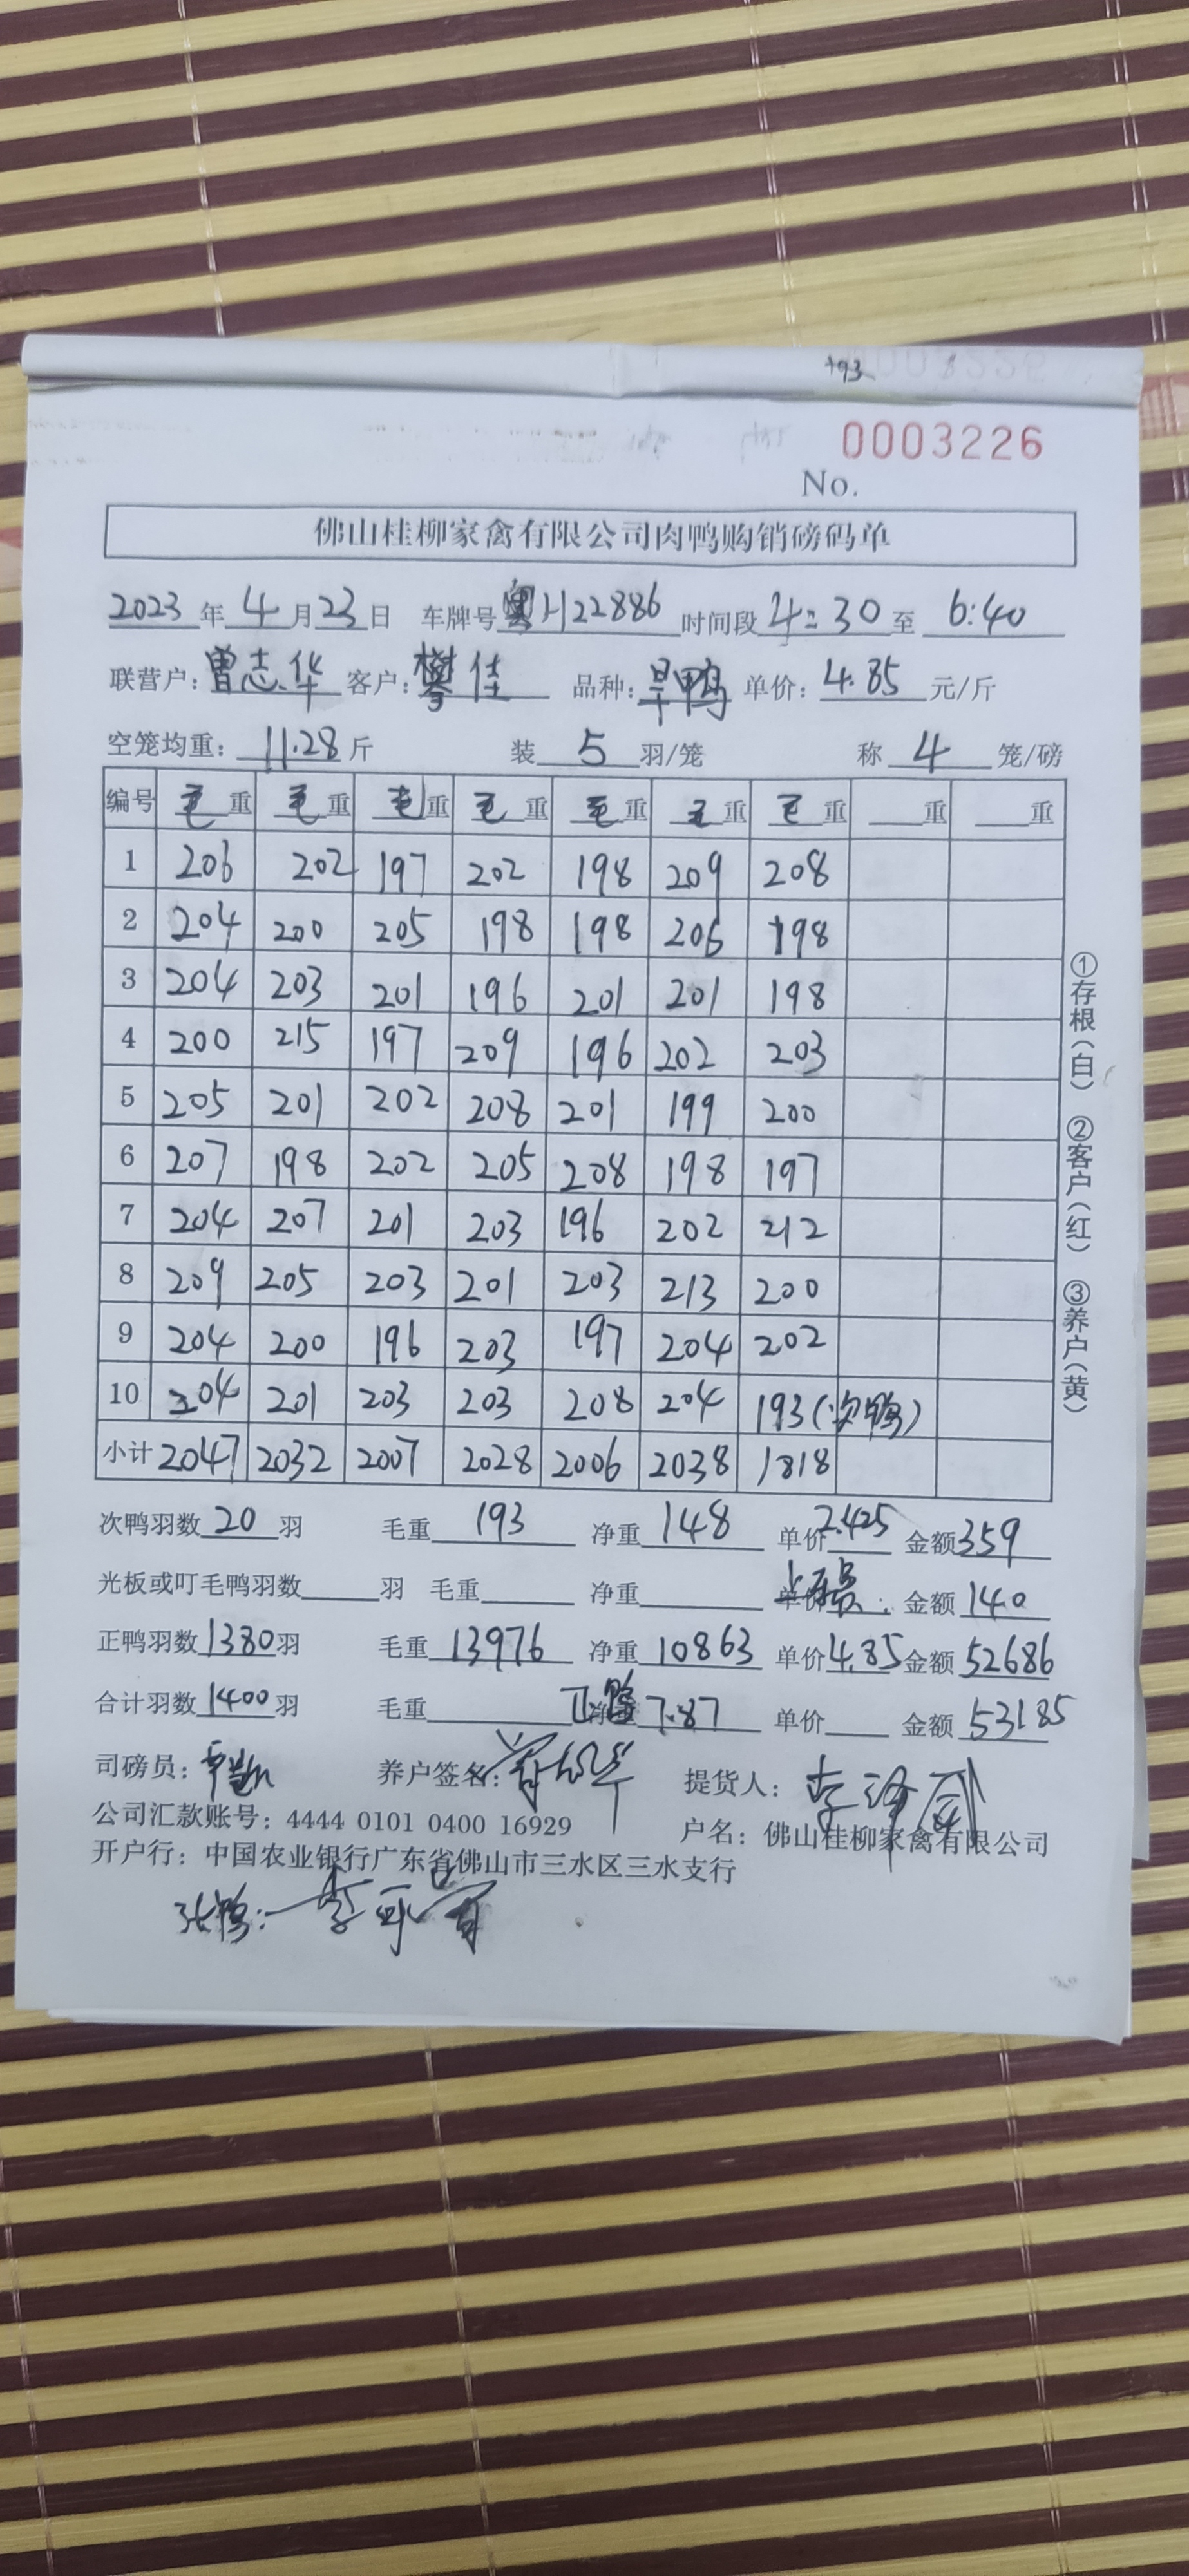 +93
0003226
No.
佛山桂柳家禽有限公司肉鸭购销磅码单
2023 年 4 月 23 日 车牌号 粤H22886 时间段 4:30 至 6:40
联营户: 曾志华 客户: 樊佳 品种: 旱鸭 单价: 4.85 元/斤
空笼均重: 11.28 斤 装 5 羽/笼 称 4 笼/磅
编号 毛重 毛重 毛重 毛重 毛重 毛重 毛重 重 重
1 206 202 197 202 198 209 208
2 204 200 205 198 198 206 198
3 204 203 201 196 201 201 198
4 200 215 197 209 196 202 203
5 205 201 202 208 201 199 200
6 207 198 202 205 208 198 197
7 204 207 201 203 196 202 212
8 209 205 203 201 203 213 200
9 204 200 196 203 197 204 202
10 204 201 203 203 208 204 193(次鸭)
小计 2047 2032 2007 2028 2006 2038 1818
①存根(白) ②客户(红) ③养户(黄)
次鸭羽数 20 羽 毛重 193 净重 148 单价 2.425 金额 359
光板或叮毛鸭羽数 羽 毛重 净重 单价 金额 140
正鸭羽数 1380 羽 毛重 13976 净重 10863 单价 4.85 金额 52686
合计羽数 1400 羽 毛重 正鸭 7.87 单价 金额 53185
司磅员: 养户签名: 提货人:
公司汇款账号: 4444 0101 0400 16929 户名: 佛山桂柳家禽有限公司
开户行: 中国农业银行广东省佛山市三水区三水支行